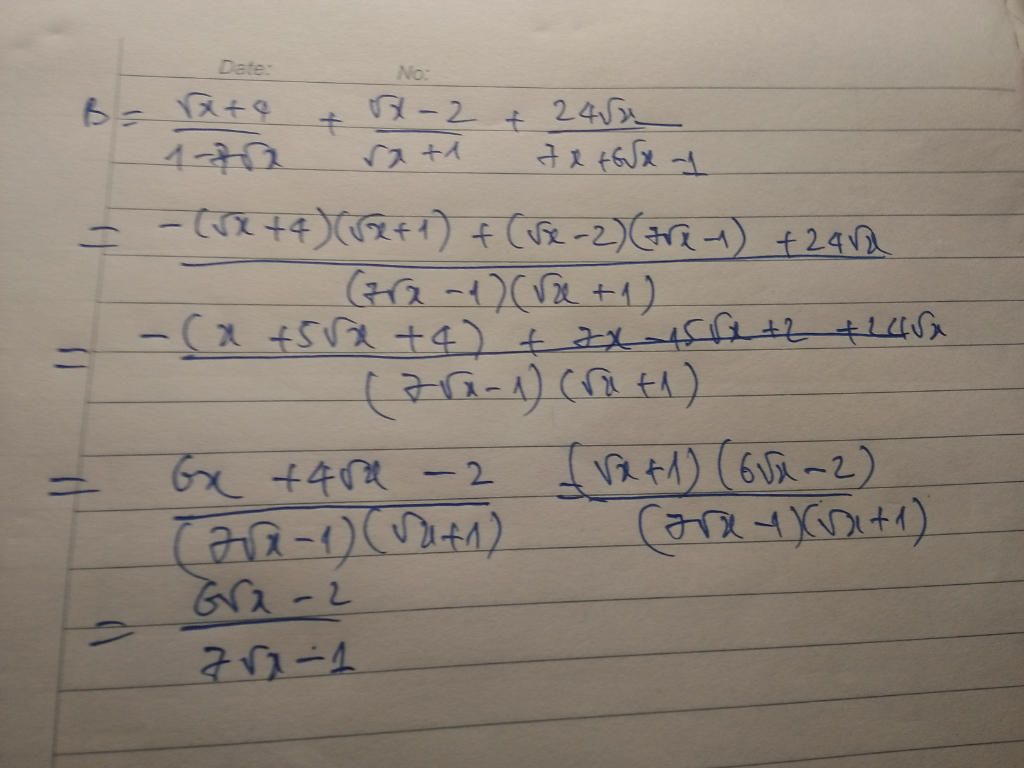 Date: No:
B = (√x+4)/(1-7√x) + (√x-2)/(√x+1) + 24√x/(7x+6√x-1)
= (-(√x+4)(√x+1) + (√x-2)(7√x-1) + 24√x)/((7√x-1)(√x+1))
= (-(x+5√x+4) + 7x-15√x+2 + 24√x)/((7√x-1)(√x+1))
= (6x+4√x-2)/((7√x-1)(√x+1)) = ((√x+1)(6√x-2))/((7√x-1)(√x+1))
= (6√x-2)/(7√x-1)